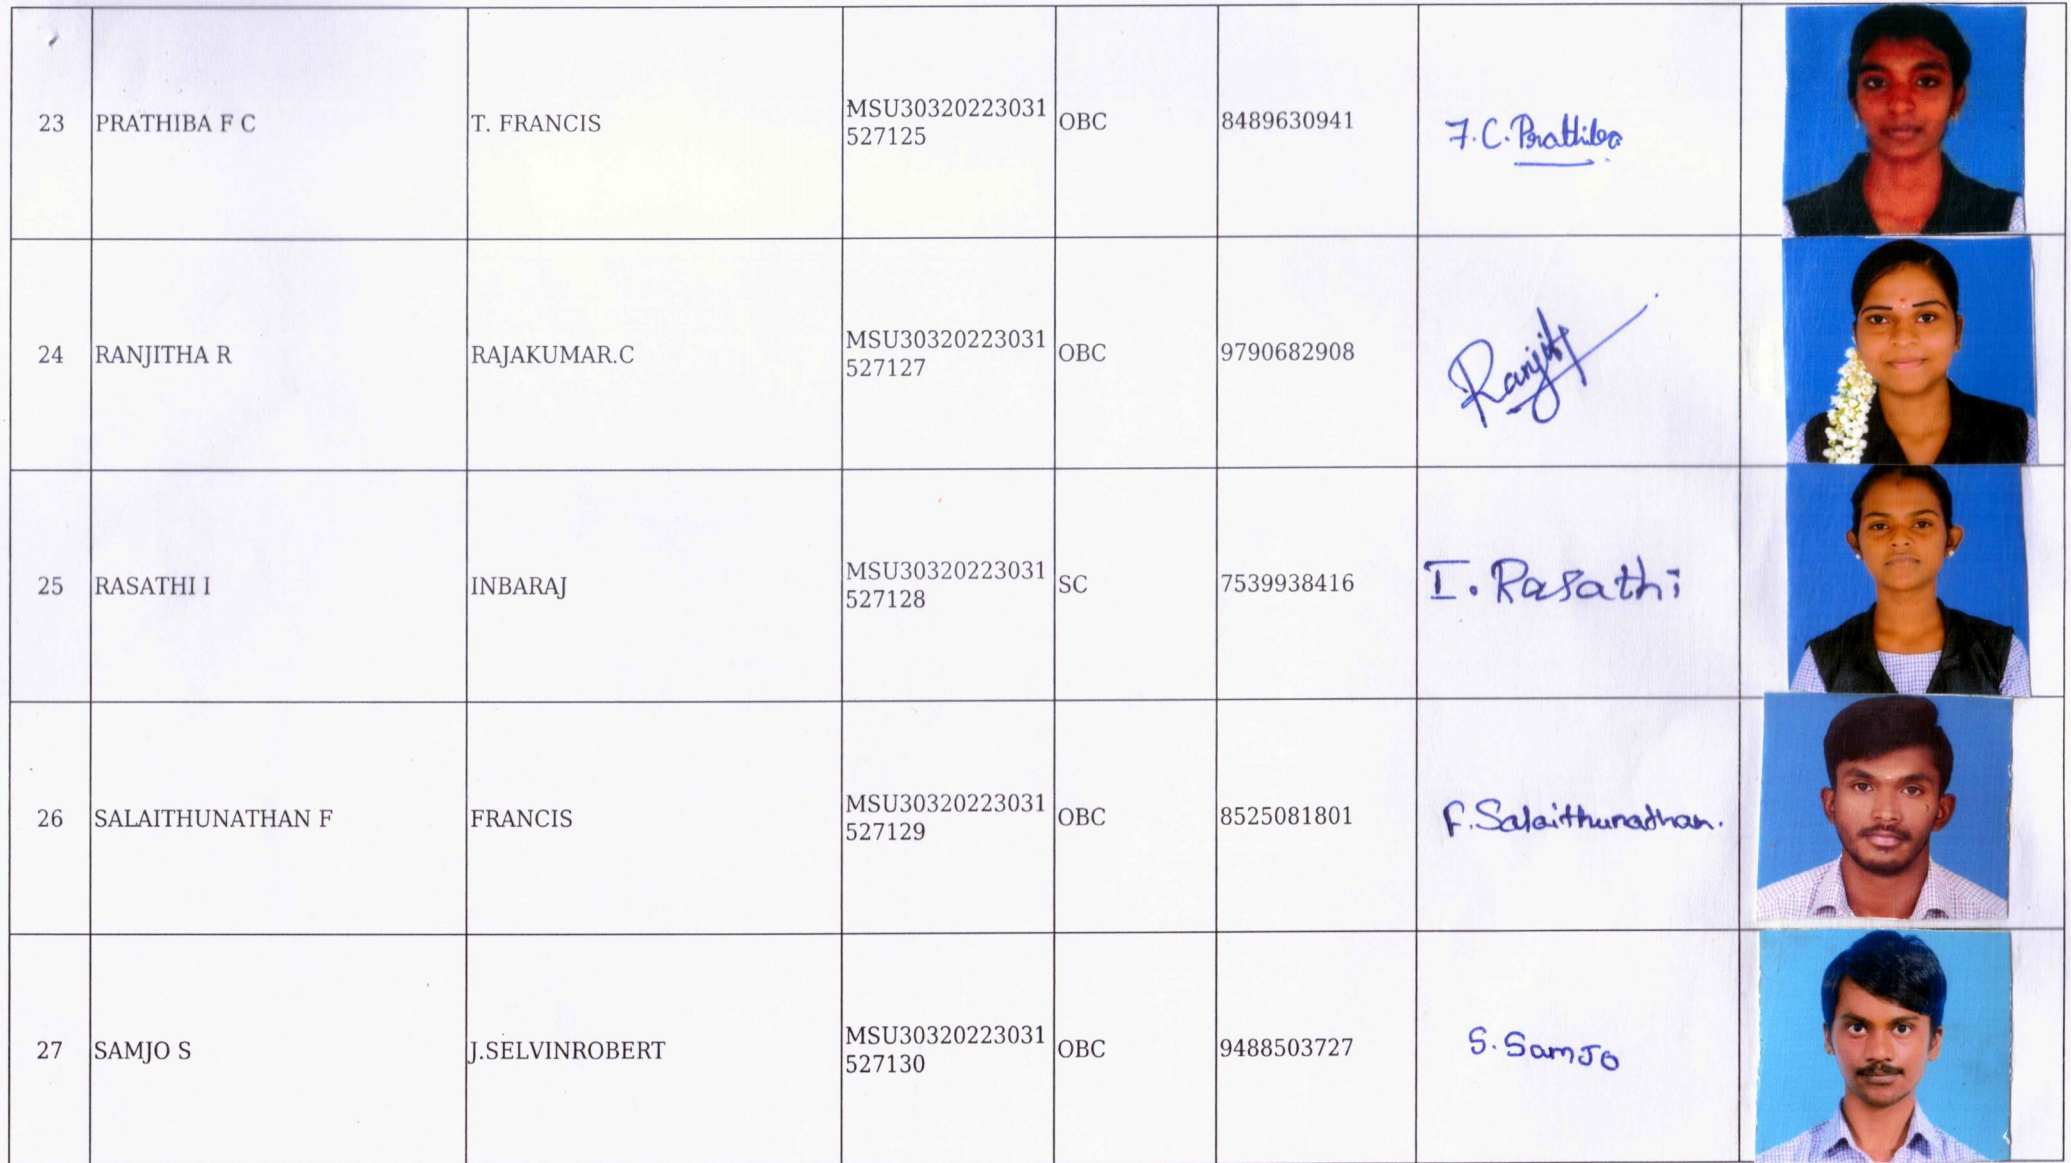 23 PRATHIBA F C T. FRANCIS MSU30320223031 OBC 8489630941 F.C.Prathiba
527125
24 RANJITHA R RAJAKUMAR.C MSU30320223031 OBC 9790682908
527127
25 RASATHI I INBARAJ MSU30320223031 SC 7539938416 I. Rasathi
527128
26 SALAITHUNATHAN F FRANCIS MSU30320223031 OBC 8525081801 F.Salaithunathan.
527129
27 SAMJO S J.SELVINROBERT MSU30320223031 OBC 9488503727 S.SamJo
527130